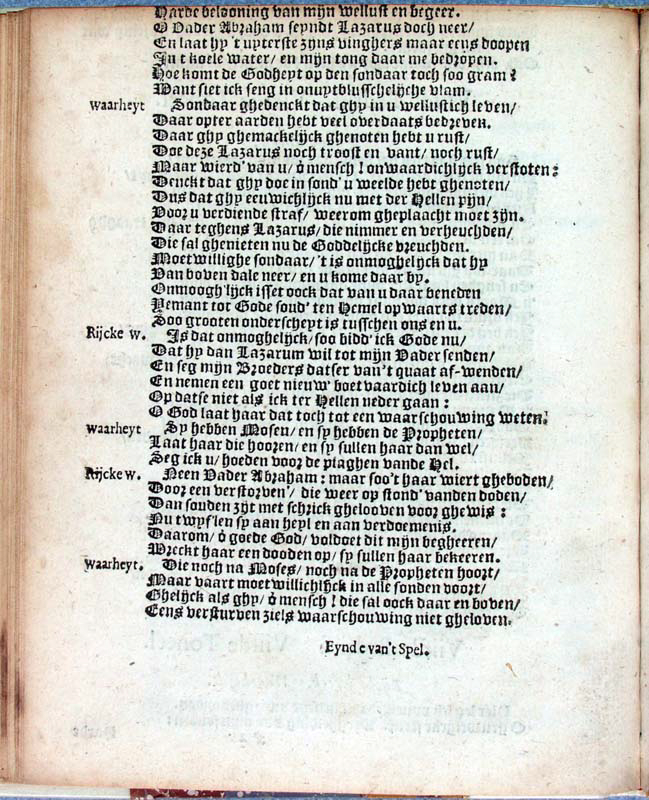 Harde belooning van mijn wellust en begeer.
O Vader Abraham seyndt Lazarus doch neer/
En laat hy 't uyterste zyns vinghers maar eens doopen
In 't koele water/ en mijn tong daar me bedropen.
Hoe komt de Godheyt op den sondaar toch soo gram?
Want siet ick seng in onuytblusschelijche vlam.
waarheyt Sondaar ghedenckt dat ghy in u wellustich leven/
Daar opter aarden hebt veel overdaats bedreven.
Daar ghy ghemackelijck ghenoten hebt u rust/
Doe deze Lazarus noch troost en vant/ noch rust/
Maar wierd' van u/ ò mensch! onwaardichlijck verstoten:
Denckt dat ghy doe in sond' u weelde hebt ghenoten/
Dus dat ghy eeuwichlijck nu met der Hellen pijn/
Voor u verdiende straf/ weerom gheplaacht moet zijn.
Daar teghens Lazarus/ die nimmer en verheuchden/
Die sal ghenieten nu de Goddelijcke vreuchden.
Moetwillighe sondaar/ 't is onmoghelijck dat hy
Van boven dale neer/ en u kome daar by.
Onmoogh'lijck isset oock dat van u daar beneden
Yemant tot Gode soud' ten Hemel opwaarts treden/
Soo grooten onderscheyt is tusschen ons en u.
Rijcke w. Is dat onmoghelijck/ soo bidd' ick Gode nu/
Dat hy dan Lazarum wil tot mijn Vader senden/
En seg mijn Broeders datser van't quaat af-wenden/
En nemen een goet nieuw' boetvaardich leven aan/
Op datse niet als ick ter Hellen neder gaan:
O God laat haar dat toch tot een waarschouwing weten.
waarheyt Sy hebben Mosen/ en sy hebben de Propheten/
Laat haar die hooren/ en sy sullen haar dan wel/
Seg ick u/ hoeden voor de plaghen vande Hel.
Rijcke w. Neen Vader Abraham: maar soo't haar wiert gheboden/
Door een verstorven'/ die weer op stond' vanden doden/
Dan souden zijt met schrick ghelooven voor ghewis:
Nu twyf'len sy aan heyl en aan verdoemenis.
Daarom/ ò goede God/ voldoet dit mijn begheeren/
Wreckt haar een dooden op/ sy sullen haar bekeeren.
waarheyt. Die noch na Moses/ noch na de Propheten hoort/
Maar vaart moetwillichlijck in alle sonden voort/
Ghelijck als ghy/ ò mensch! die sal oock daar en boven/
Eens versturven ziels waarschouwing niet gheloven.
Eynde van't Spel.